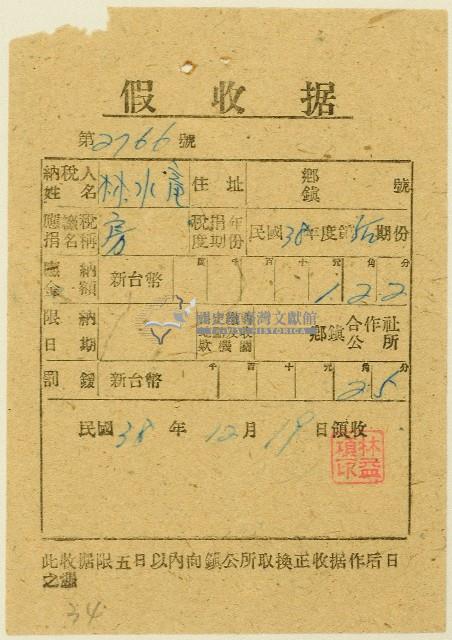 假收据
第2766號
納稅人姓名 林水 住址 鄉鎮 號
應繳稅捐名稱 房 稅捐年度期份 民國38年度第后期份
應納金額 新台幣 千百十元角分 1 2 2
國史館臺灣文獻館
TAIWAN HISTORICA
限納日期 收款機關 鄉鎮 合作社公所
罰鍰 新台幣 千百十元角分 2 5
民國38年12月19日領收
林益
印
此收据限五日以內向鎮公所取換正收据作后日
之憑
34